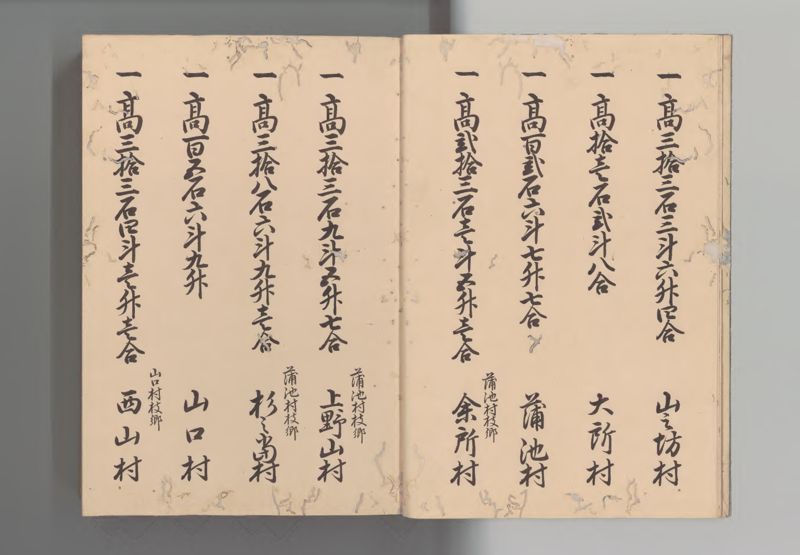 一高三拾三石三斗六升四合 山之坊村
一高拾壱石弐斗八合 大所村
一高百弐石六斗七升七合 蒲池村
蒲池村枝郷
一高弐拾三石壱斗五升壱合 余所村
蒲池村枝郷
一高三拾三石九斗五升七合 上野山村
蒲池村枝郷
一高三拾八石六斗九升壱合 杉之当村
一高百五石六斗九升 山口村
山口村枝郷
一高三拾三石四斗壱升壱合 西山村